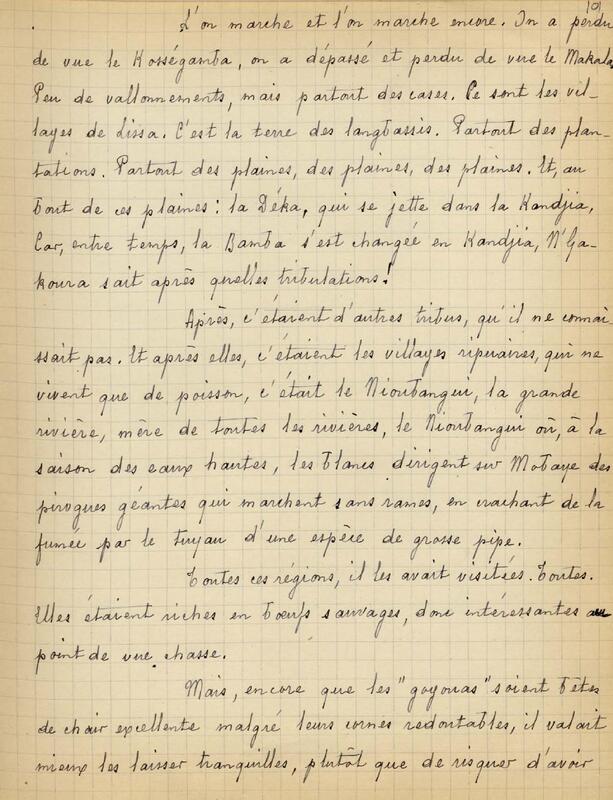 101
L'on marche et l'on marche encore. On a perdu
de vue le Kosségamba, on a dépassé et perdu de vue le Makala.
Peu de vallonnements, mais partout des cases. Ce sont les vil-
lages de Lissa. C'est la terre des langbassis. Partout des plan-
tations. Partout des plaines, des plaines, des plaines. Et, au
bout de ces plaines : la Déka, qui se jette dans la Kandjia,
Car, entre temps, la Bamba s'est changée en Kandjia, N'Ga-
koura sait après quelles tribulations !
Après, c'étaient d'autres tribus, qu'il ne connai
ssait pas. Et après elles, c'étaient les villages ripuaires, qui ne
vivent que de poisson, c'était le Nioubangui, la grande
rivière, mère de toutes les rivières, le Nioubangui où, à la
saison des eaux hautes, les blancs dirigent sur Mobaye des
pirogues géantes qui marchent sans rames, en crachant de la
fumée par le tuyau d'une espèce de grosse pipe.
Toutes ces régions, il les avait visitées. Toutes.
Elles étaient riches en bœufs sauvages, donc intéressantes au
point de vue chasse.
Mais, encore que les "gogouas" soient bêtes
de chair excellente malgré leurs cornes redoutables, il valait
mieux les laisser tranquilles, plutôt que de risquer d'avoir